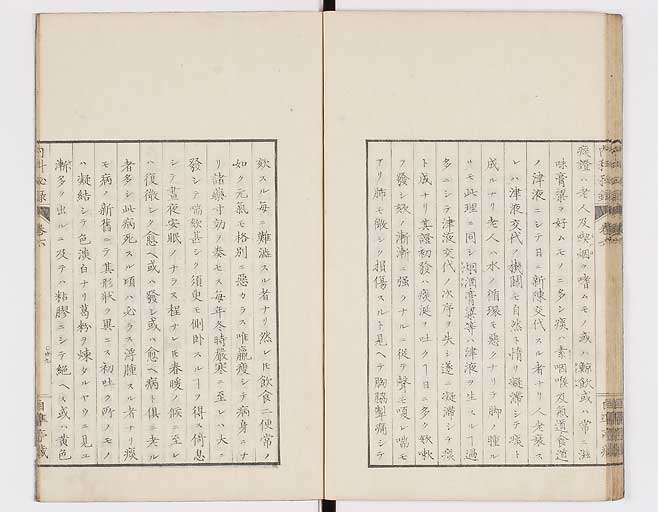 痰證ハ老人及喫烟ヲ嗜ムモノ或ハ鯨飲或ハ常ニ滋
味膏粱ヲ好ムモノニ多シ痰ハ素咽喉及氣道食道
ノ津液ニシテ日ニ新陳交代スル者ナリ人老衰ス
レハ津液交代ノ機關モ自然ト惰リ凝滯シテ痰ト
成ルナリ老人ハ水ノ循環モ惡クナリテ脚ノ腫ル
リモ此理ニ同シ烟酒膏粱等ハ津液ヲ生スルヿ過
多ニシテ津液交代ノ次序ヲ失シ遂ニ凝滯シテ痰
ト成ナリ其證初發ハ痰涎ヲ吐クヿ日ニ多ク欬嗽
ヲ發シ欬漸漸ニ强クナルニ從テ聲モ嗄レ喘モ
アリ肺モ微シク損傷スルト見ヘテ胸脇掣痛シテ
欬スル每ニ難澁スル者ナリ然レ𪜈飲食二便常ノ
如ク元氣モ格別ニ惡カラス唯羸瘦シテ病身ニナ
リ諸藥寸効ヲ奏セス每年冬時嚴寒ニ至レハ大ニ
發シテ喘欬甚シク須臾モ側卧スルヿヲ得ス倚息
シテ晝夜安眠ノナラス程ナレ𪜈春暖ノ候ニ至レ
ハ復微シク愈ヘ或ハ發シ或ハ愈ヘ病ト俱ニ老ル
者多シ此病死スル頃ハ必ラス浮腫スル者ナリ痰
モ病ノ新舊ニテ其形狀ヲ異ニス初吐ク所ノモノ
ハ凝結シテ色淡白ナリ葛粉ヲ煉タルヤウニ見ユ
漸多ク出ルニ及テハ粘膠ニシテ絕ヘス或ハ黃色
內科秘錄
卷六